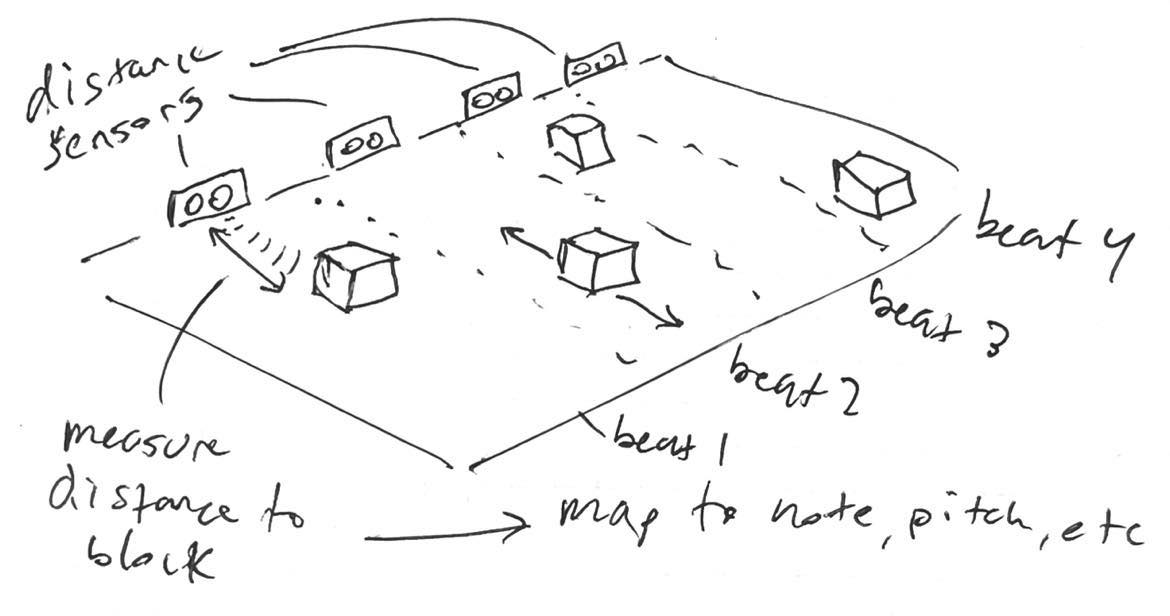 distance
sensors
beat 4
beat 3
beat 2
beat 1
measure
distance to
block
map to note, pitch, etc